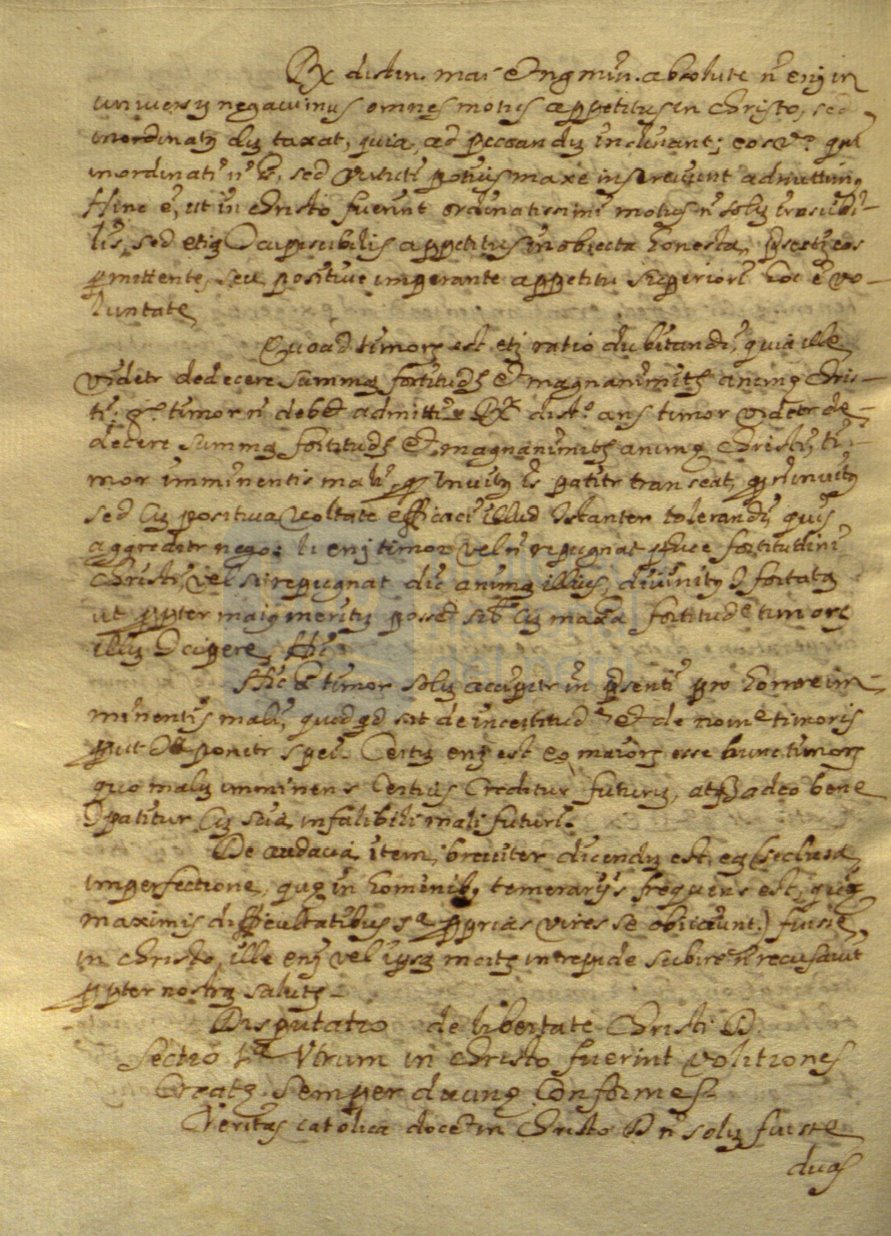 Rx distin. mai et ng min. absolute n̄ enj in
universū negavimus omnes motus appetitus in Christo, sed
inordinatos dū taxat, quia ad peccandū inclinant; eos v.º qui
inordinati n.º s̄, sed virtuti potius maxē inserviunt admittimꝰ
Hinc ē, ut in Christo fuerint ordinatissimi motus n̄ solū irascibi-
lis, sed etiā Ɔcupiscibilis appetitus in obiecta honesta,
pmittente, seu positive imperante appetitu superiori hoc ē vo-
luntate
Quoad timorē est etj ratio dubitandi, quia ille
videtr dedecere summā fortitudē et magnanimitē animę Chris-
ti; timor n̄ debet admitti Rx dist.º ans timor videtr de-
decere summā fortitudē et magnanimitē animę Christi, ti-
mor imminentis mali, invitū patitr transeat,
sed cū positiva voltate efficaci illud Ɔstanter tolerandi quis
aggreditr nego: enj timor vel n̄ repugnat fortitudini
Christi, vel si repugnat dic animā illius, divinitꝰ Ɔfortatā
ut ppter maiꝰ meritū posset cū fortitudē timorē
illū Ɔcipere
Hic timor solū accipitr in pśenti pro horrore im-
minentis mali, quidqd sit de incertitud.e et de nome timoris
put ponitr spei. Certū enj est eo maiorē esse hunc timorē
quo malū imminens certius creditur futurū, atq adeo bene
Ɔpatitur cū sciā infalibili mali futuri.
De audacia item breviter dicendū est, eā (seclusa
imperfectione, quę in hominibꝰ temerarijs frequens est, quia
maximis difficultatibus sᵃ pprias vires se obiiciunt) fuisse
in Christo, ille enj vel ipsā mortē intrepide subire n̄ recusavit
ppter nostrā salutē
Disputatio de libertate Christi D.
Sectio 1ᵃ Utrum in Christo fuerint volitiones
creatę semper divinę conformes.
Veritas catolica docet in Christo D n̄ solū fuisse
duas